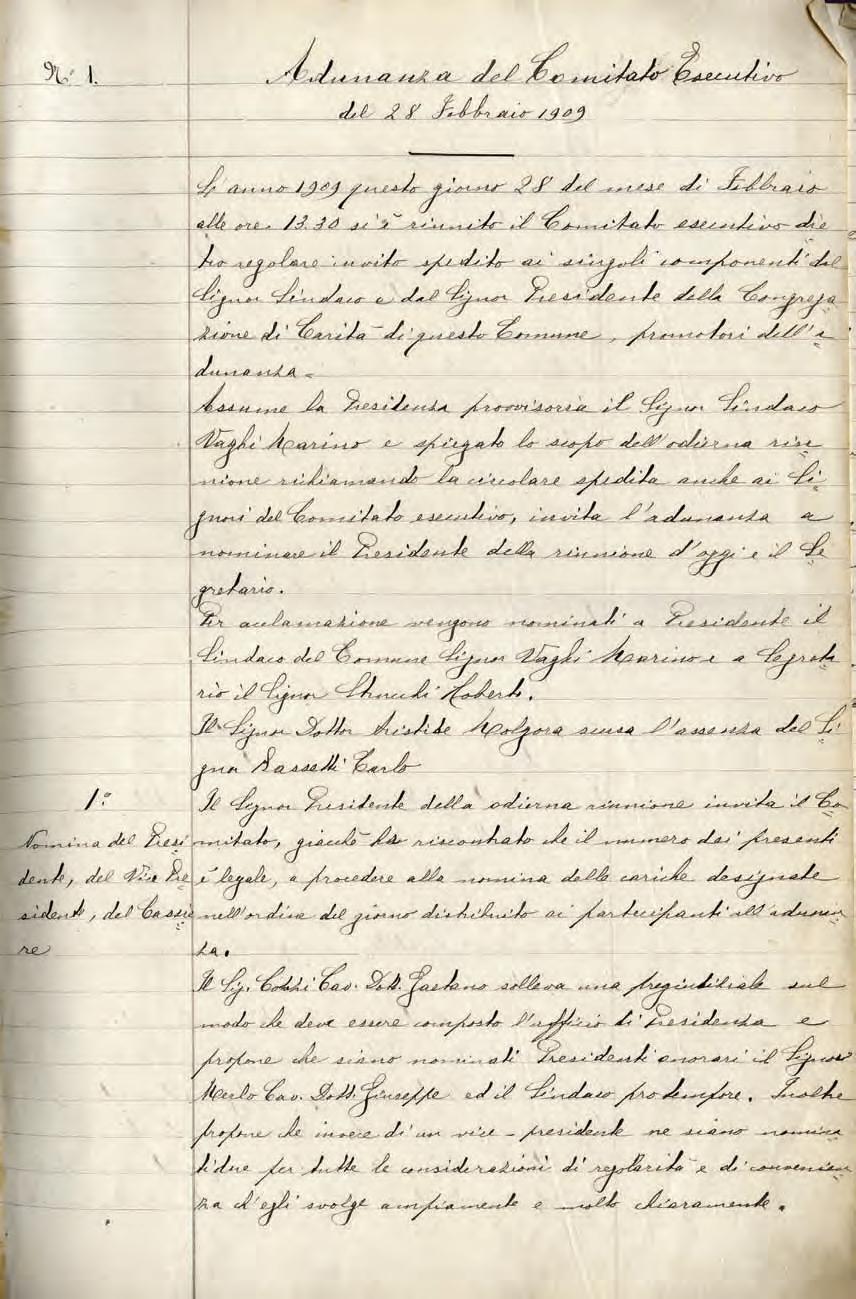 N° 1.
Adunanza del Comitato Esecutivo
del 28 Febbraio 1909
L'anno 1909 questo giorno 28 del mese di Febbraio
alle ore 13.30 si è riunito il Comitato esecutivo die
tro regolare invito spedito ai singoli componenti dal
Signor Sindaco e dal Signor Presidente della Congrega
zione di Carità di questo Comune, promotori dell'a
dunanza.
Assume la Presidenza provvisoria il Signor Sindaco
Vaghi Marino e spiegato lo scopo dell'odierna riu
nione richiamando la circolare spedita anche ai Si
gnori del Comitato esecutivo, invita l'adunanza a
nominare il Presidente della riunione d'oggi e il Se
gretario.
Per acclamazione vengono nominati a Presidente il
Sindaco del Comune Signor Vaghi Marino e a Segreta
rio il Signor Strucchi Roberto.
Il Signor Dottor Aristide Molgora scusa l'assenza del Si
gnor Sassetti Carlo
1°
Nomina del Presi
dente, del Vice Pre
sidente, del Cassie
re
Il Signor Presidente della odierna riunione invita il Co
mitato, giacché ha riscontrato che il numero dei presenti
è legale, a procedere alla nomina delle cariche designate
nell'ordine del giorno distribuito ai partecipanti all'adunan
za.
Il Sig. Cozzi Cav. Dott. Gaetano solleva una pregiudiziale sul
modo che deve essere composto l'ufficio di Presidenza e
propone che siano nominati Presidenti onorari il Signor
Merlo Cav. Dott. Giuseppe ed il Sindaco pro tempore. Inoltre
propone che invece di un vice-presidente ne siano nomina
ti due per tutte le considerazioni di regolarità e di convenien
za ch'egli svolge ampiamente e molto chiaramente.